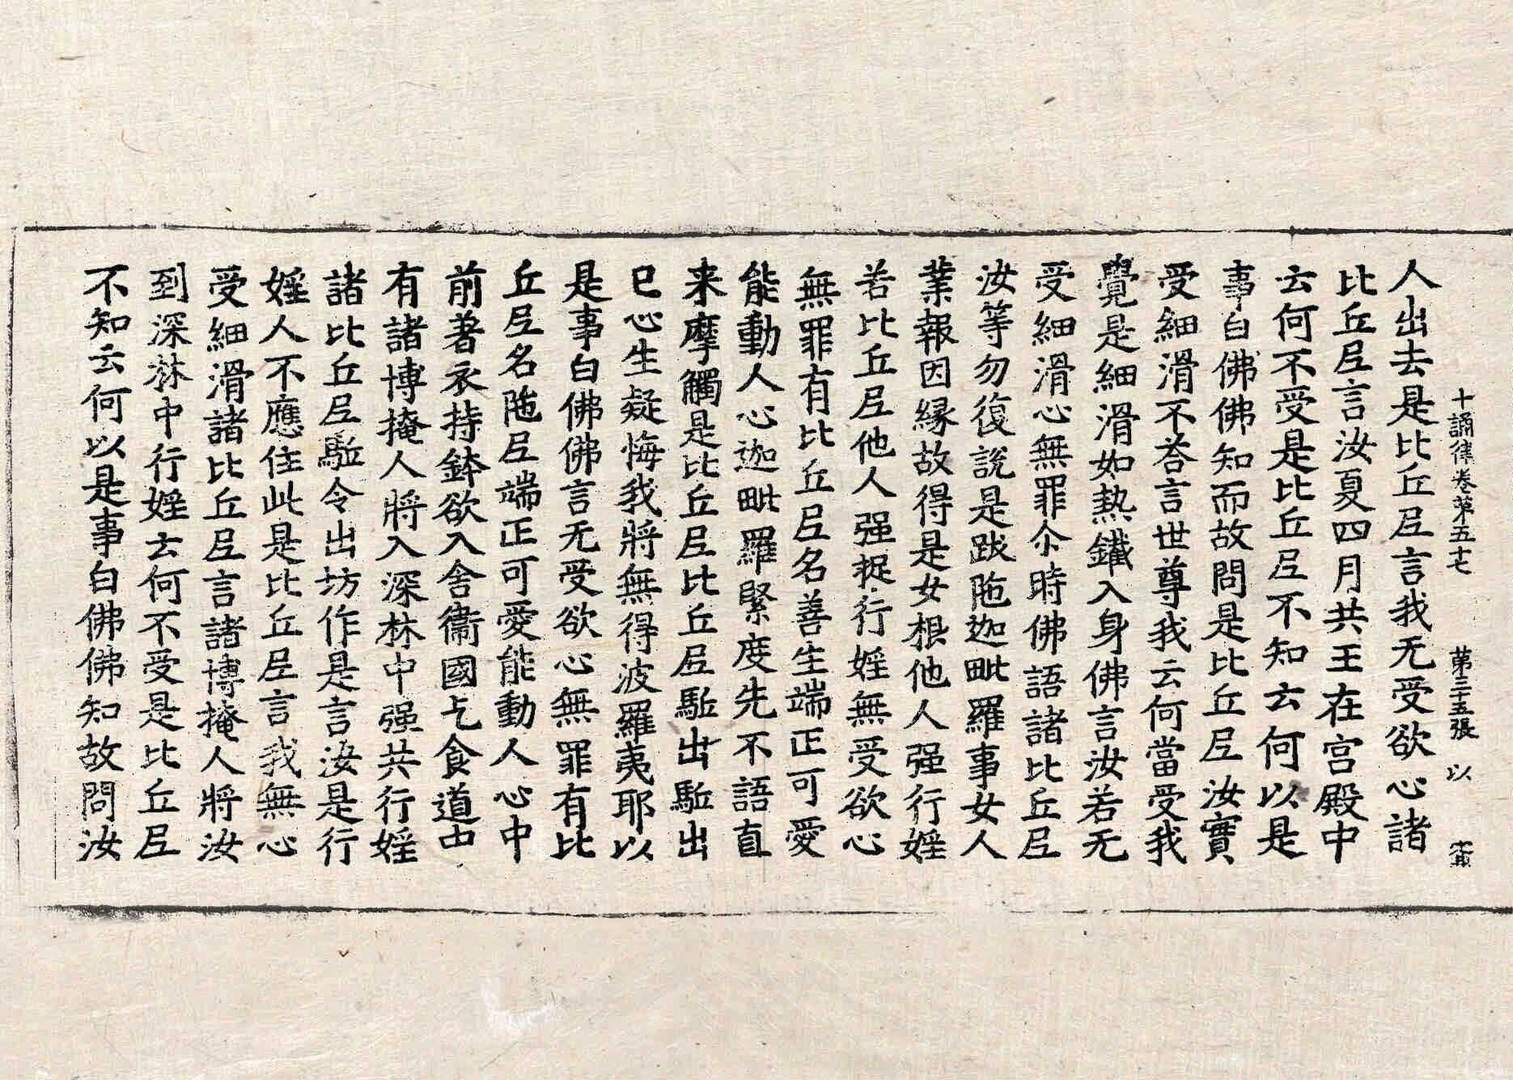 十誦律卷苐五十七 第三十五張 以
人出去是比丘𡰱言我无受欲心諸
比丘𡰱言汝夏四月共王在宫殿中
云何不受是比丘𡰱不知云何以是
事白佛佛知而故問是比丘𡰱汝實
受細滑不荅言世尊我云何當受我
覺是細滑如熱鐵入身佛言汝若无
受細滑心無罪尒時佛語諸比丘𡰱
汝等勿復說是跋陁迦毗羅事女人
業報因緣故得是女根他人强行婬
若比丘𡰱他人强捉行婬無受欲心
無罪有比丘𡰱名善生端正可愛
能動人心迦毗羅緊度先不語直
来摩觸是比丘𡰱比丘𡰱駈出駈出
已心生疑悔我將無得波羅夷耶以
是事白佛佛言无受欲心無罪有比
丘𡰱名陁𡰱端正可愛能動人心中
前著衣持鉢欲入舍衛國乞食道中
有諸博掩人將入深林中强共行婬
諸比丘𡰱駈令出坊作是言汝是行
婬人不應住此是比丘𡰱言我無心
受細滑諸比丘𡰱言諸博掩人將汝
到深林中行婬云何不受是比丘𡰱
不知云何以是事白佛佛知故問汝